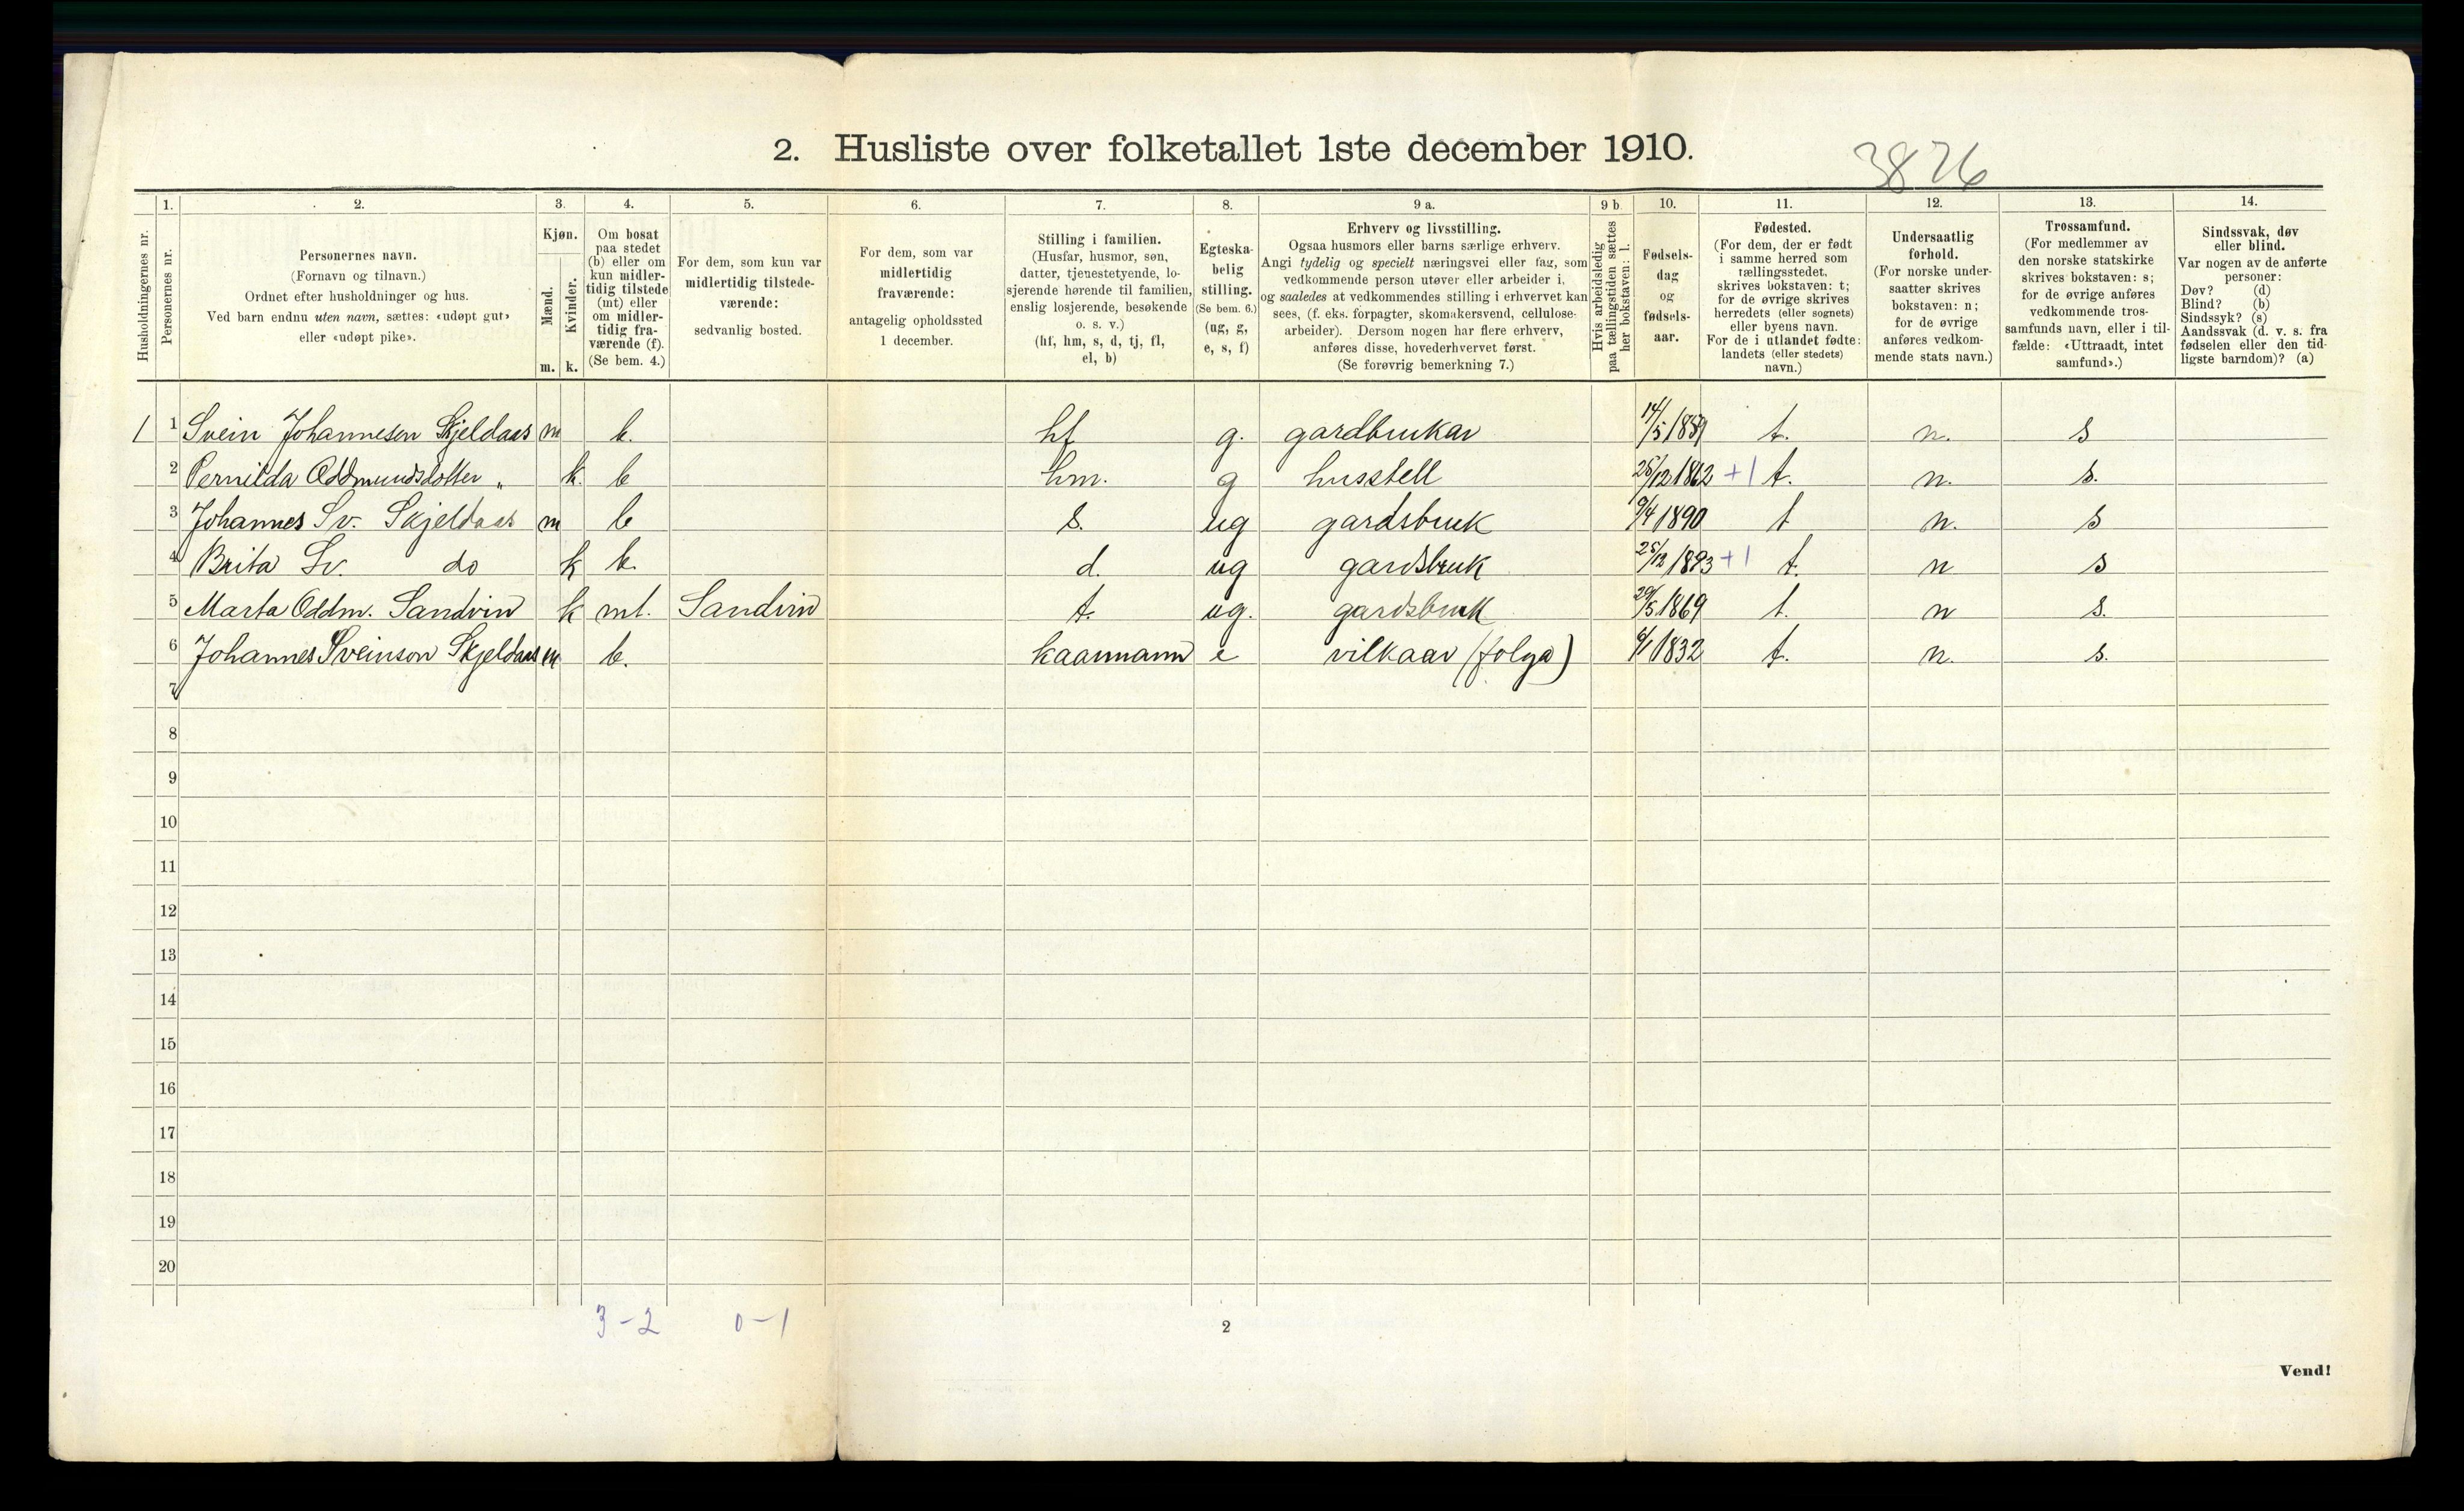 2. Husliste over folketallet 1ste december 1910.
3826
Husholdningernes nr.
1.
Personernes nr.
2.
Personernes navn.
(Fornavn og tilnavn.)
Ordnet efter husholdninger og hus.
Ved barn endnu uten navn, sættes: «udøpt gut»
eller «udøpt pike».
3.
Kjøn.
Mænd.
Kvinder.
m. k.
4.
Om bosat
paa stedet
(b) eller om
kun midler-
tidig tilstede
(mt) eller
om midler-
tidig fra-
værende (f).
(Se bem. 4.)
5.
For dem, som kun var
midlertidig tilstede-
værende:
sedvanlig bosted.
6.
For dem, som var
midlertidig
fraværende:
antagelig opholdssted
1 december.
7.
Stilling i familien.
(Husfar, husmor, søn,
datter, tjenestetyende, lo-
sjerende hørende til familien,
enslig losjerende, besøkende
o. s. v.)
(hf, hm, s, d, tj, fl,
el, b)
8.
Egteska-
belig
stilling.
(Se bem. 6.)
(ug, g,
e, s, f)
9 a.
Erhverv og livsstilling.
Ogsaa husmors eller barns særlige erhverv.
Angi tydelig og specielt næringsvei eller fag, som
vedkommende person utøver eller arbeider i,
og saaledes at vedkommendes stilling i erhvervet kan
sees, (f. eks. forpagter, skomakersvend, cellulose-
arbeider). Dersom nogen har flere erhverv,
anføres disse, hovederhvervet først.
(Se forøvrig bemerkning 7.)
9 b.
Hvis arbeidsledig
paa tællingstiden sættes
her bokstaven: l.
10.
Fødsels-
dag
og
fødsels-
aar.
11.
Fødested.
(For dem, der er født
i samme herred som
tællingsstedet,
skrives bokstaven: t;
for de øvrige skrives
herredets (eller sognets)
eller byens navn.
For de i utlandet fødte:
landets (eller stedets)
navn.)
12.
Undersaatlig
forhold.
(For norske under-
saatter skrives
bokstaven: n;
for de øvrige
anføres vedkom-
mende stats navn.)
13.
Trossamfund.
(For medlemmer av
den norske statskirke
skrives bokstaven: s;
for de øvrige anføres
vedkommende tros-
samfunds navn, eller i til-
fælde: «Uttraadt, intet
samfund».)
14.
Sindssvak, døv
eller blind.
Var nogen av de anførte
personer:
Døv? (d)
Blind? (b)
Sindssyk? (s)
Aandssvak (d. v. s. fra
fødselen eller den tid-
ligste barndom)? (a)
1 1 Svein Johannesen Skjeldaas m b. hf g. gardbrukar 14/5 1859 t. n. s
2 Pernilda Oddmundsdotter " k. b hm. g husstell 25/12 1862 +1 t. n. s.
3 Johannes Sv. Skjeldaas m b s. ug gardsbruk 9/4 1890 t n. s
4 Brita Sv. do k b. d. ug gardsbruk 25/12 1893 +1 t. n s
5 Marta Oddm. Sandvin k mt. Sandvin t. ug. gardsbruk 29/5 1869 t. n s.
6 Johannes Sveinson Skjeldaas m b. kaarmann e vilkaar (folga) 6/1 1832 t. n. s.
7
8
9
10
11
12
13
14
15
16
17
18
19
20
3-2 0-1
2
Vend!